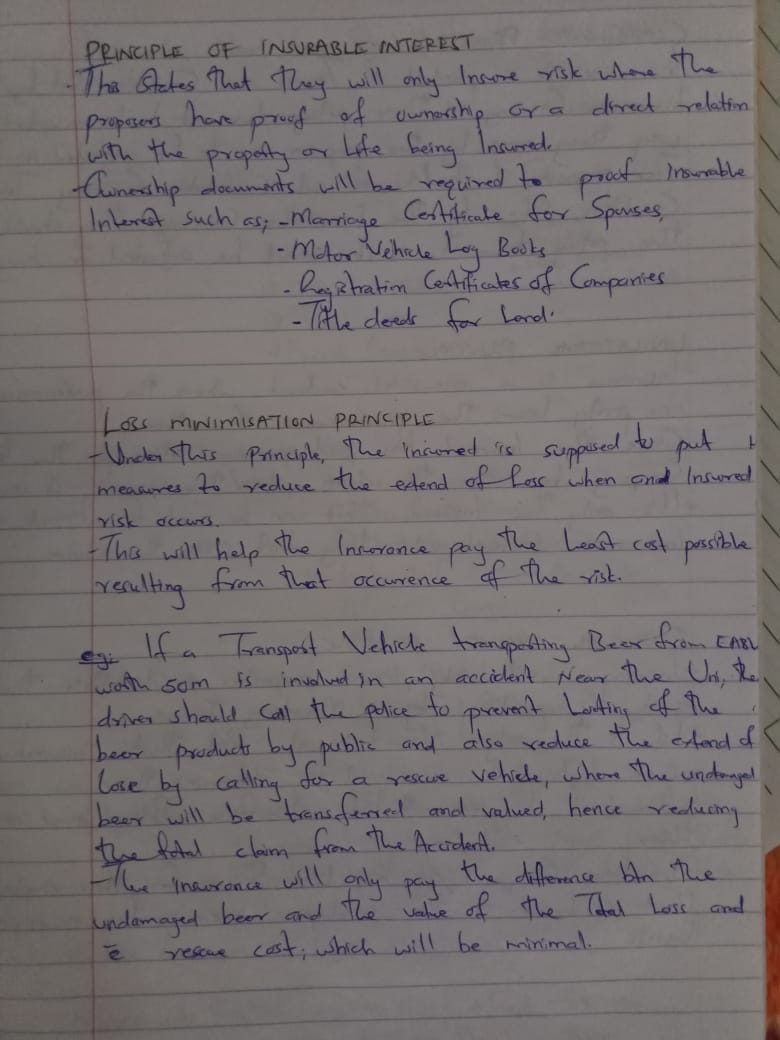 PRINCIPLE OF INSURABLE INTEREST
- This States that they will only Insure risk where the
proposers have proof of ownership or a direct relation
with the property or Life being Insured.
- Ownership documents will be required to proof Insurable
Interest such as; - Marriage Certificate for Spouses,
- Motor Vehicle Log Books
- Registration Certificates of Companies
- Title deeds for Land.
LOSS MINIMISATION PRINCIPLE
- Under this Principle, the insured is supposed to put
measures to reduce the extend of Loss when and Insured
risk occurs.
- This will help the Insurance pay the Least cost possible
resulting from that occurence of the risk.
eg: If a Transport Vehicle transporting Beer from EABL
worth 50m is involved in an accident Near the Uni, the
driver should call the police to prevent Looting of the
beer products by public and also reduce the extend of
Lose by calling for a rescue vehicle, where the undamaged
beer will be transferred and valued, hence reducing
the total claim from the Accident.
- The insurance will only pay the difference btn the
undamaged beer and the value of the Total Loss and
c̄ rescue cost; which will be minimal.